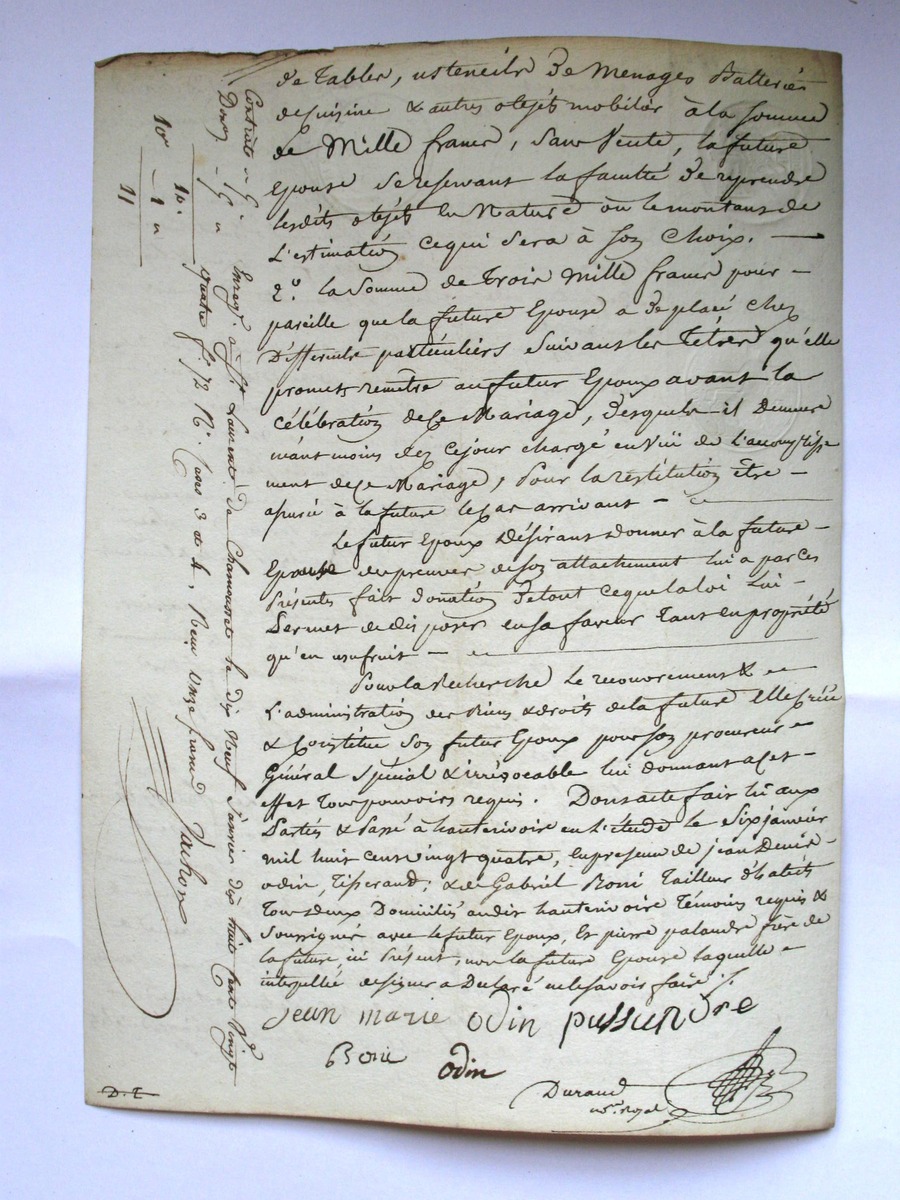 de Tables, ustencils de Menages Batteries
de Cuisine & autres objets mobilier à la Somme
de Mille francs, Sans Vente, la future
Epouse se reservant la faculté de reprendre
lesdits objets en Nature ou le montans de
L'estimation ce qui Sera à Son Choix. —
2º. la Somme de Trois Mille francs pour –
pareille que la future Epouse a de placé chez
Differents particuliers Suivant les Titres qu'elle
promet remettre au futur Epoux avant la
célébration de Ce Mariage, desquels il demeure
néant moins dez cejour chargé en Vüe de L'accomplisse
ment de Ce Mariage, Pour la restitution être –
assuré à la future le Cas arrivant –
Le futur Epoux Désirant donner à la future –
Epouse des preuves de Son attachement lui a par Ces
présentes fait Donation de tout ce que la loi Lui –
Permet de disposer en Sa faveur Tant en propriété
qu'en usufruit –
Pour la Recherche Le recouvrement &
L'administration des Biens & droits de la future Elle Crée
& Constitue Son futur Epoux pour Son procureur –
Général Spécial & irrévocable lui donnant a Cet –
effet Tous pouvoirs requis. Dont acte fait lu aux
Parties & Passé à hauterivoire en L'étude le Six janvier
mil huit cent vingt quatre, en presence de jean Denis –
odin, Tisserand; & de Gabriel Boni Tailleur d'habits
Tous deux Domiciliés audit hauterivoire Témoins requis &
Soussignés avec le futur Epoux, Et pierre palandre frère de
la future, ici Présent, non la future Epouse laquelle –
interpellée designer a Declaré ne le Savoir faire ./.
jean marie odin
Boni odin
Durand
no.re Royal
D. T.
Contrats 5f
Donon 5f
10f
1 "
11
10f
Enregé. à St. Laurent de Chamousset le Dix Neuf Janvier dix huit Cent Vingt
quatre f. 72 R. Cases 3 et 4, Recu onze francs